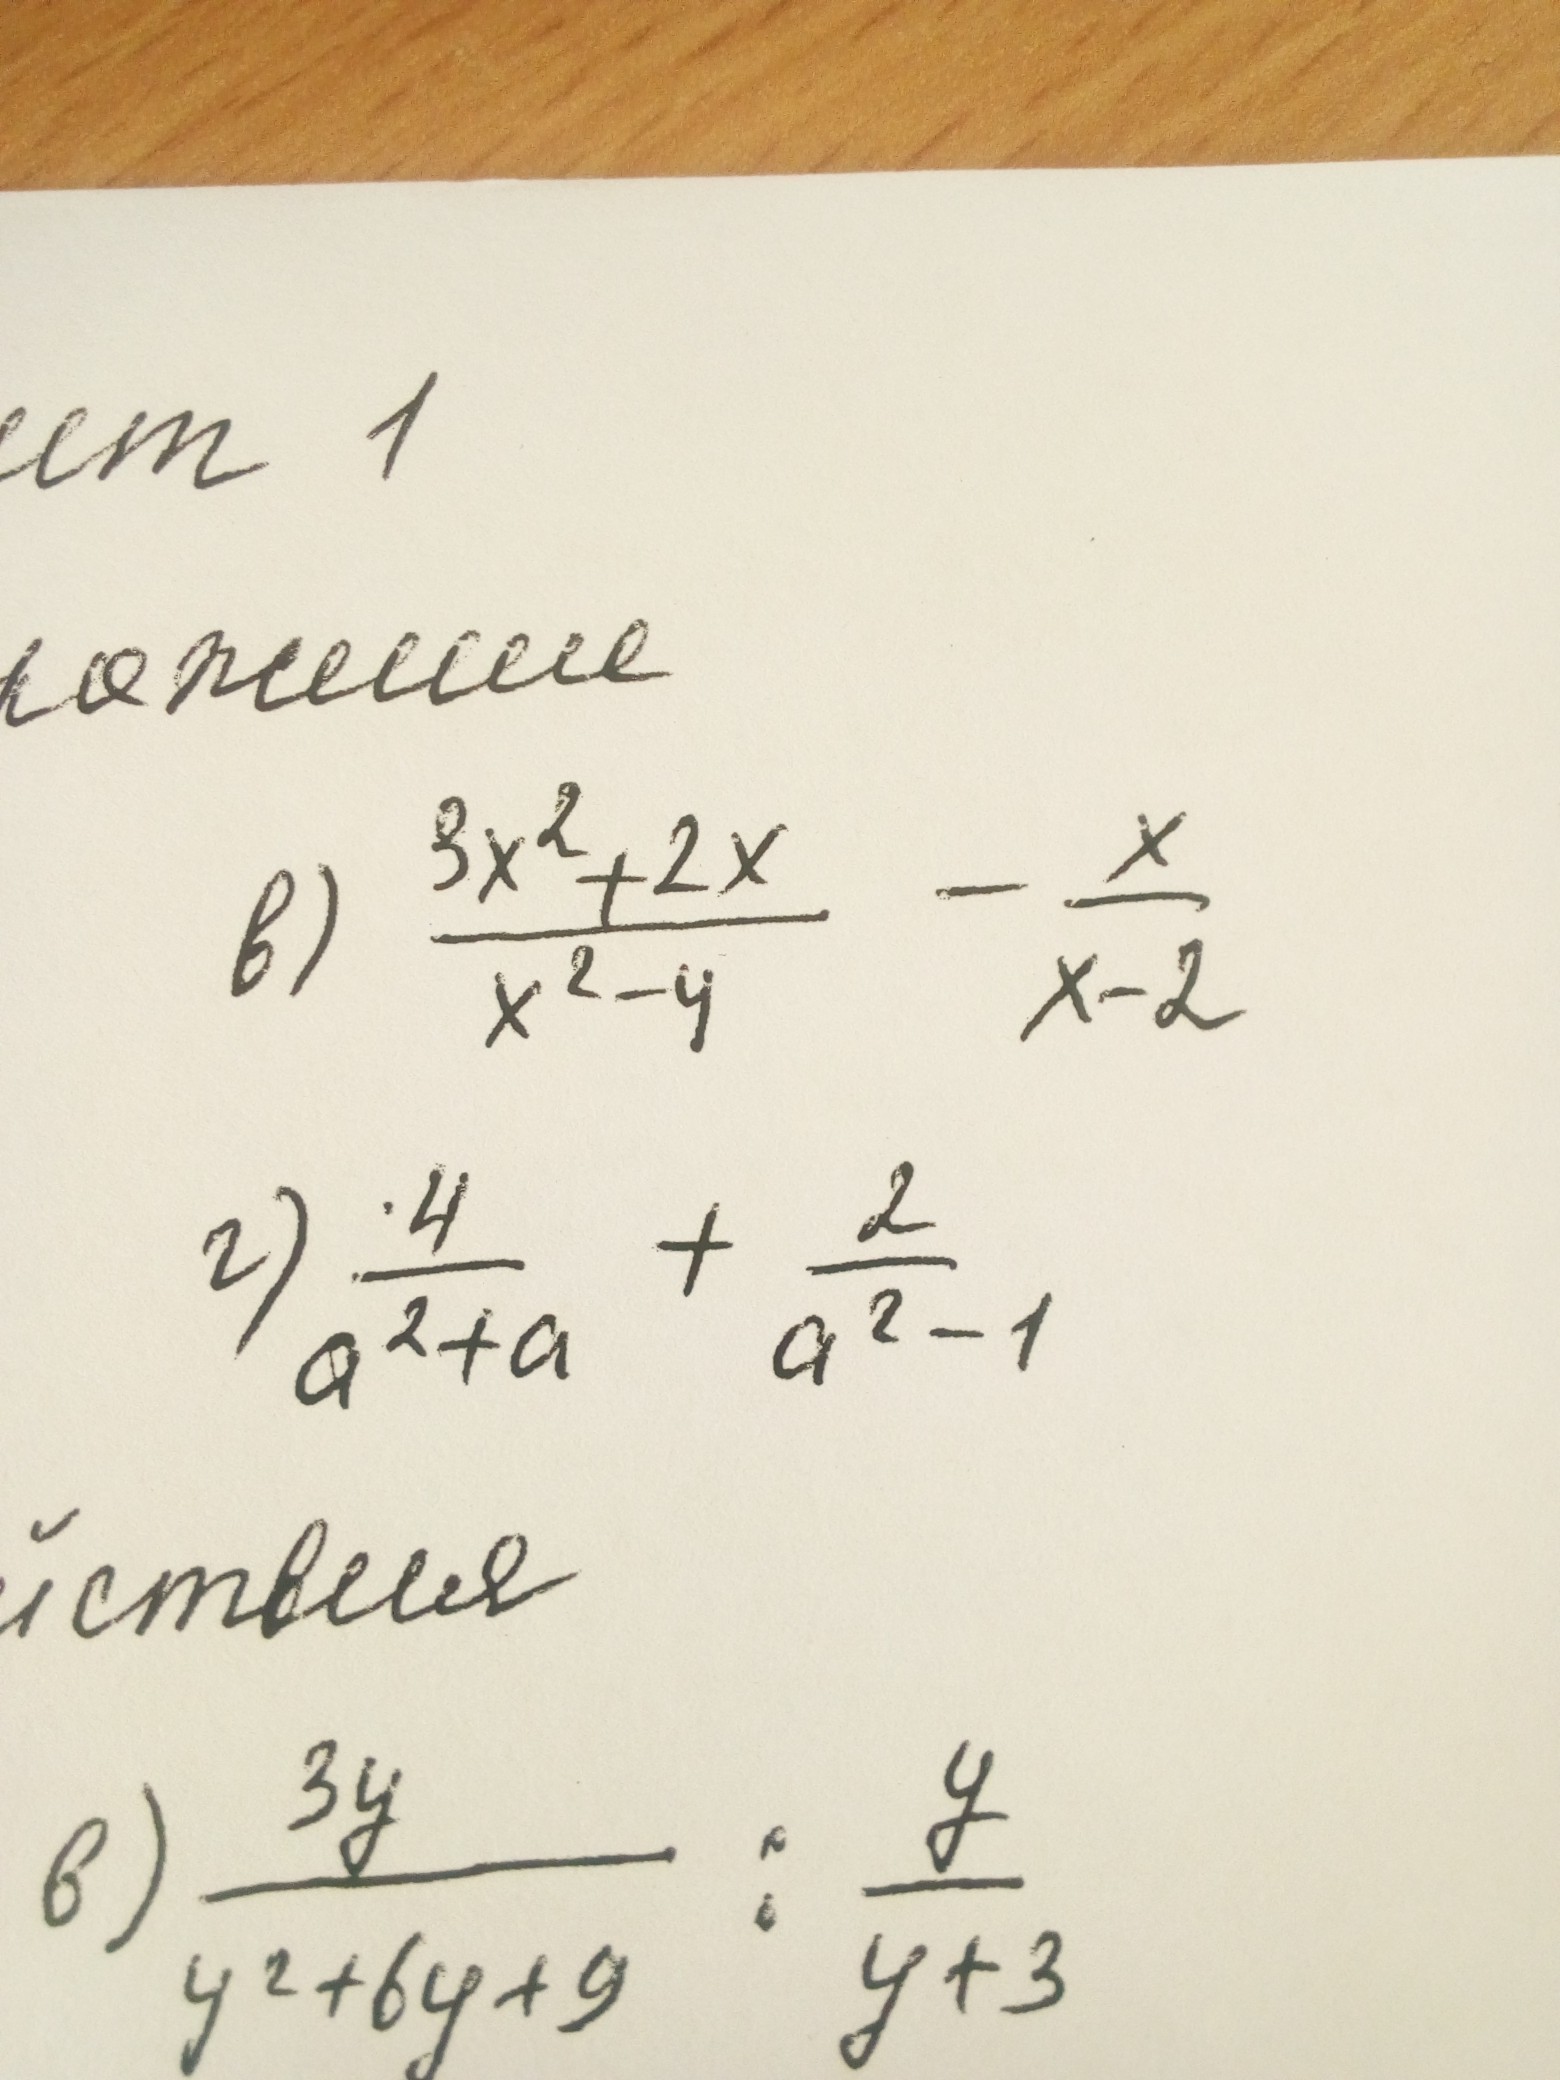 ист 1
ложение
в) (3x²+2x)/(x²-4) - x/(x-2)
г) 4/(a²+a) + 2/(a²-1)
йствия
в) 3y/(y²+6y+9) : y/(y+3)